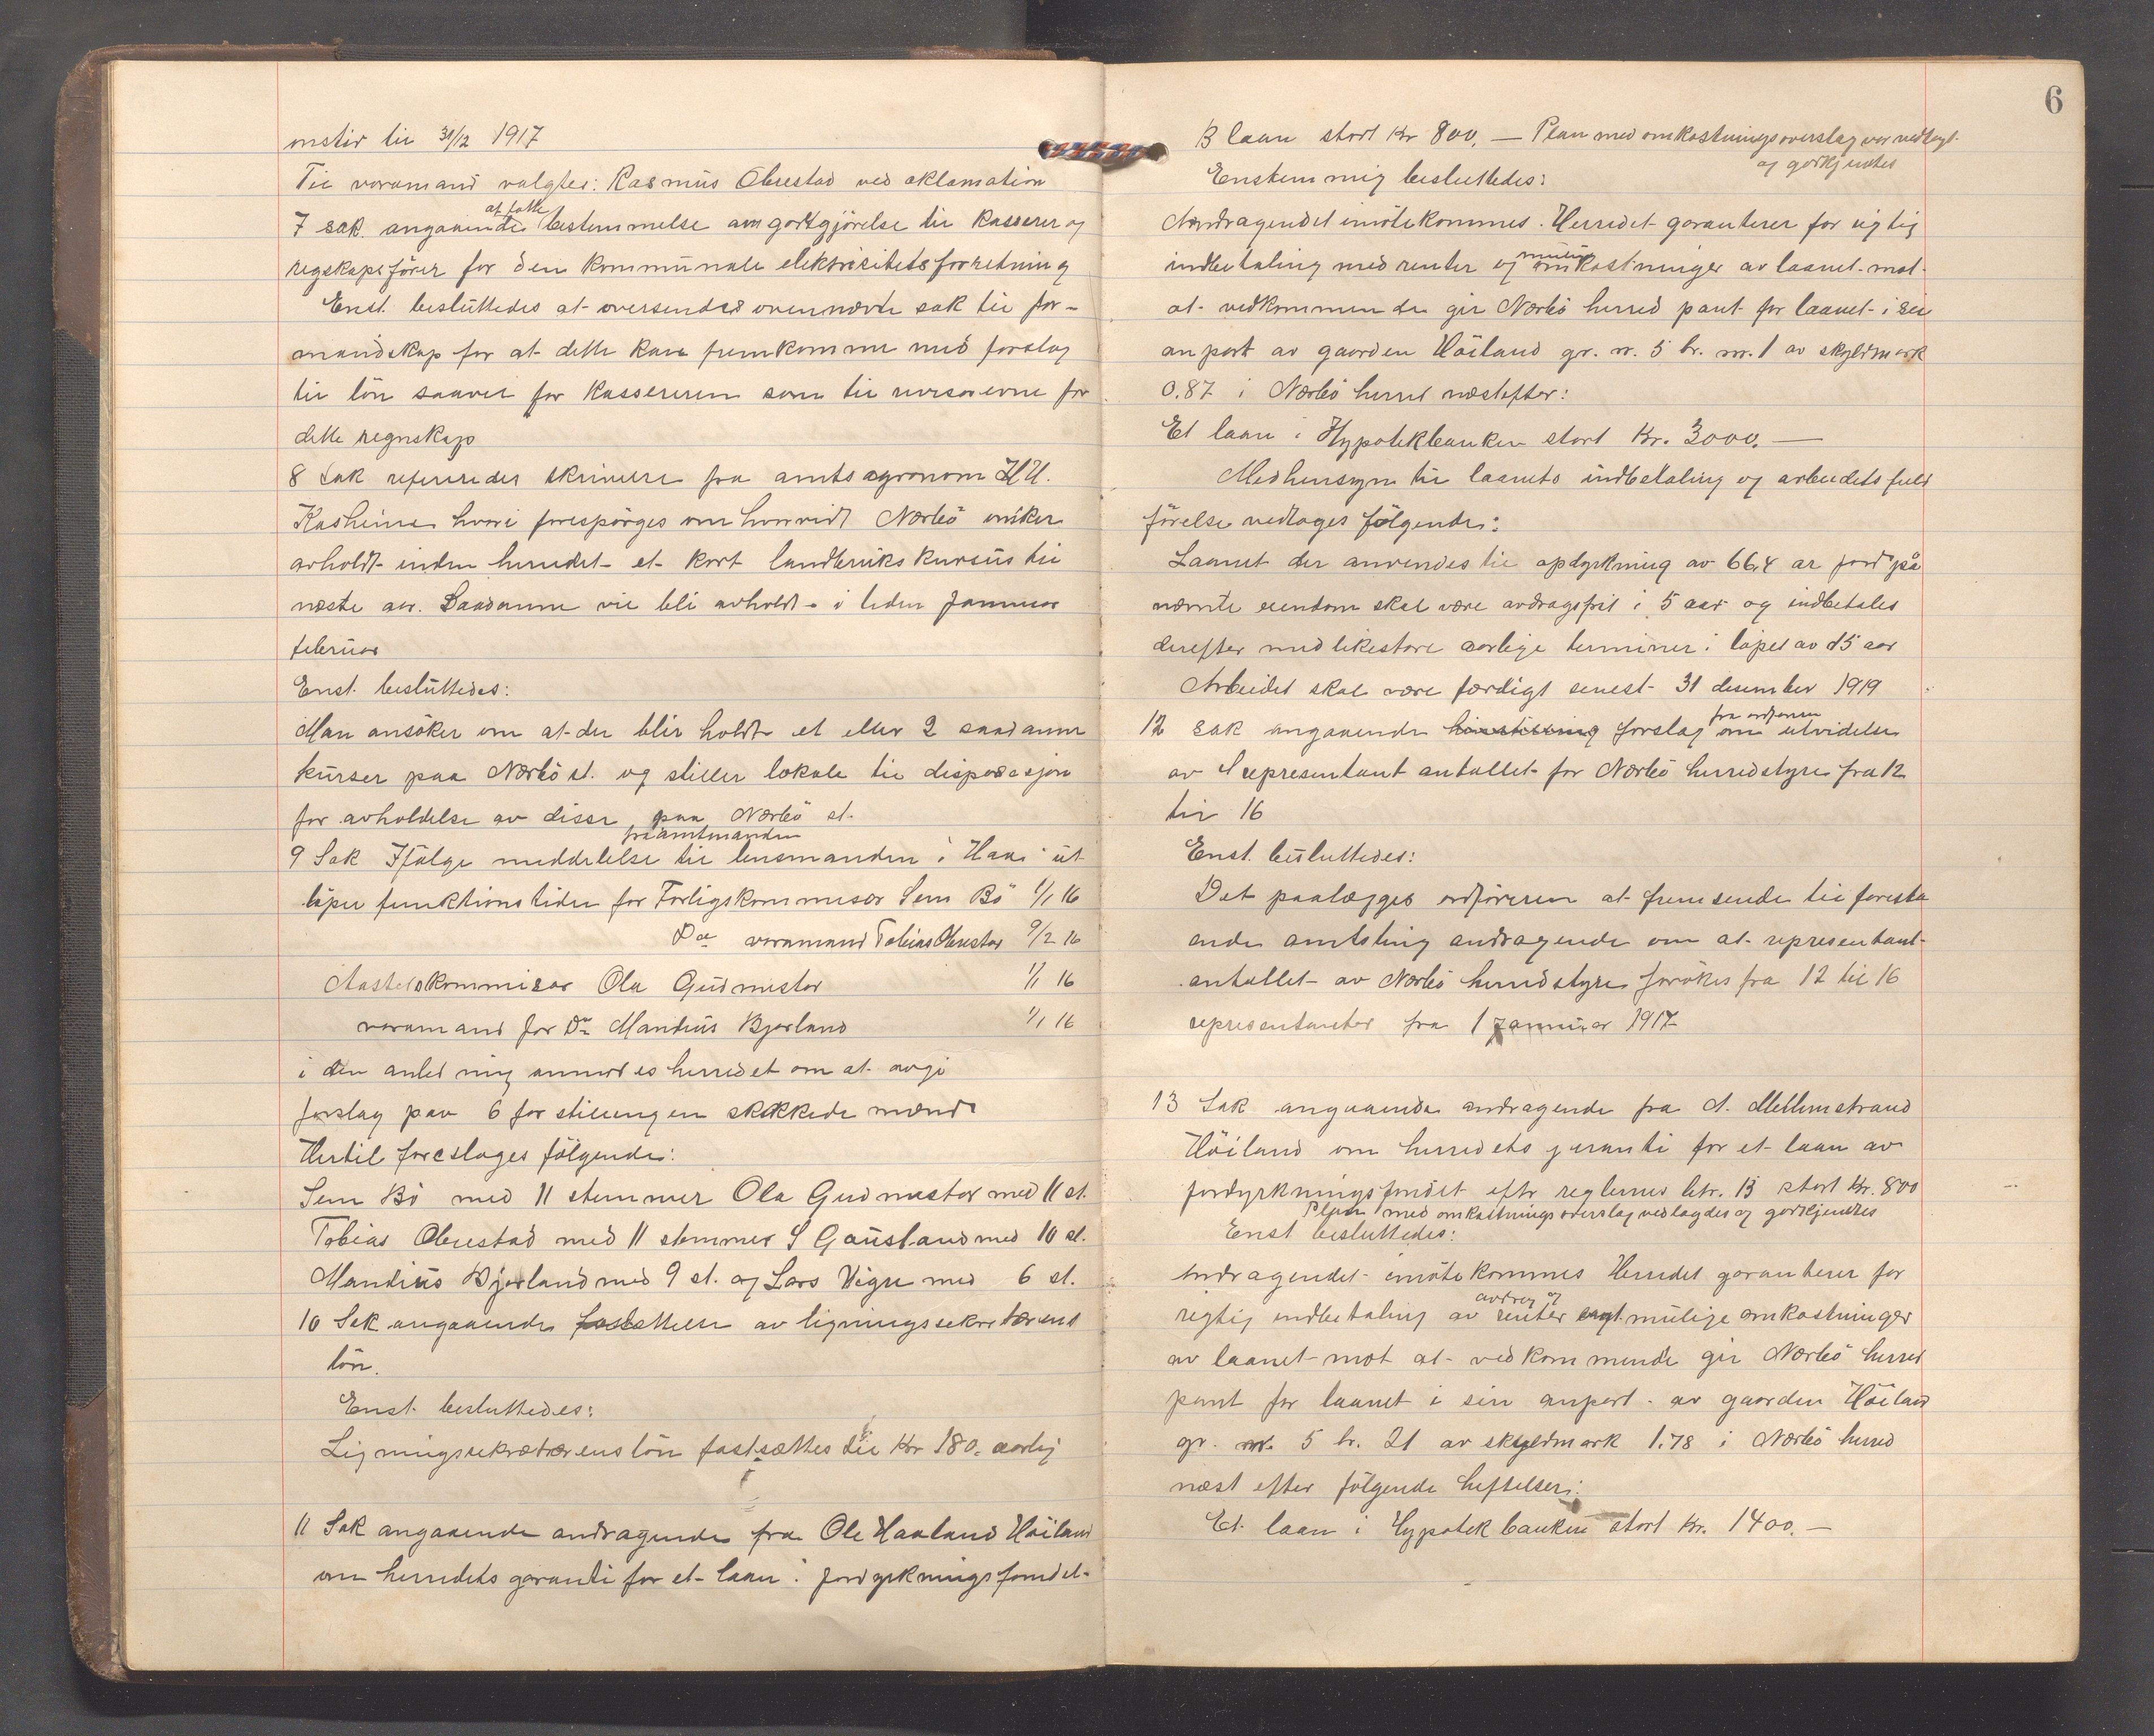 mstir til 31/12 1917
Til varamand valgtes: Rasmus Obrestad ved aklamation
7 sak. angaaende at fatte bestemmelse om godtgjörelse til Kasserer og
regskapsförer for den Kommunale elektricitetsforretning
Enst. besluttedes at oversendes ovennevnte sak til for-
mandskap for at dette kan fremkomme med forslag
til lön saavel for Kassereren som til revisorerne for
dette regnskap
8 Sak refereredes skrivelse fra amtsagronom
hvori forespörges om hvorvidt Nærbö önsker
avholdt inden herredet et kort landbrukskursus til
næste aar. Saadanne vil bli avholdt i tiden Januar
februar
Enst. besluttedes:
Man ansöker om at der blir holdt et eller 2 saadanne
kurser paa Nærbö st. og stiller lokale til disposisjon
for avholdelse av disse paa Nærbö st.
9 Sak Ifölge meddelelse fra amtmanden til lensmanden i Haa ut
löper funktionstiden for Forligskommisær Sem Bö 1/1 16
Do varamand Tobias Obrestad 9/2 16
Aastedskommisær Ola Gudmestad 1/1 16
varamand for Do Mandius Bjorland 1/1 16
i den anledning anmodes herredet om at avgi
forslag paa 6 for stillingen skikkede mænd
Hertil foreslages fölgende:
Sem Bö med 11 stemmer Ola Gudmestad med 11 st.
Tobias Obrestad med 11 stemmer S Gausland med 10 st.
Mandius Bjorland med 9 st. og Lars Vigre med 6 st.
10 Sak angaaende fastsettelse av ligningssekretærens
lön.
Enst. besluttedes:
Ligningssekretærens lön fastsættes til Kr 180. aarlig
11 Sak angaaende andragende fra Ole Haaland Höiland
om herredets garanti for et laan i jorddyrkningsfondet
6
B laan stort Kr 800. — Plan med omkostningsoverslag var vedlagt
og godkjendtes
Enstemmig besluttedes:
Andragendet imötekommes. Herredet garanterer for rigtig
indbetaling med renter og mulig omkostninger av laanet mot
at vedkommende gir Nærbö herred pant for laanet i sin
anpart av gaarden Höiland gr. nr. 5 br. nr. 1 av skyldmark
0.87 i Nærbö herred næstefter:
Et laan i Hypotekbanken stort Kr. 3000. —
Med hensyn til laanets indbetaling og arbeidets fuld
förelse vedtages fölgende:
Laanet der anvendes til opdyrkning av 66,4 ar jord på
nævnte eiendom skal være avdragsfrit i 5 aar og indbetales
derefter med likestore aarlige terminer i löpet av 15 aar
Arbeidet skal være færdigt senest 31 desember 1919
12 sak angaaende forslag fra ordföreren om utvidelse
av representant antallet for Nærbö herredstyre fra 12
til 16
Enst. besluttedes:
Det paalægges ordföreren at fremsende til foresta
ende amtsting andragende om at representant-
antallet av Nærbö herredstyre forökes fra 12 til 16
representanter fra 1 Januar 1917
13 Sak angaaende andragende fra A. Mellemstrand
Höiland om herredets garanti for et laan av
jordyrkningsfondet eftr reglernes litr. B stort Kr. 800
Plan med omkostningsoverslag vedlagdes og godkjendtes
Enst besluttedes:
Andragendet imötekommes Herredet garanterer for
regtig indbetaling av avdrag og renter samt mulige omkostninger
av laanet mot at vedkommende gir Nærbö herred
pant for laanet i sin anpart av gaarden Höiland
gr. nr. 5 br. 21 av skyldmark 1.78 i Nærbö herred
næst efter fölgende heftelser:
Et laan i Hypotekbanken stort Kr. 1400. —